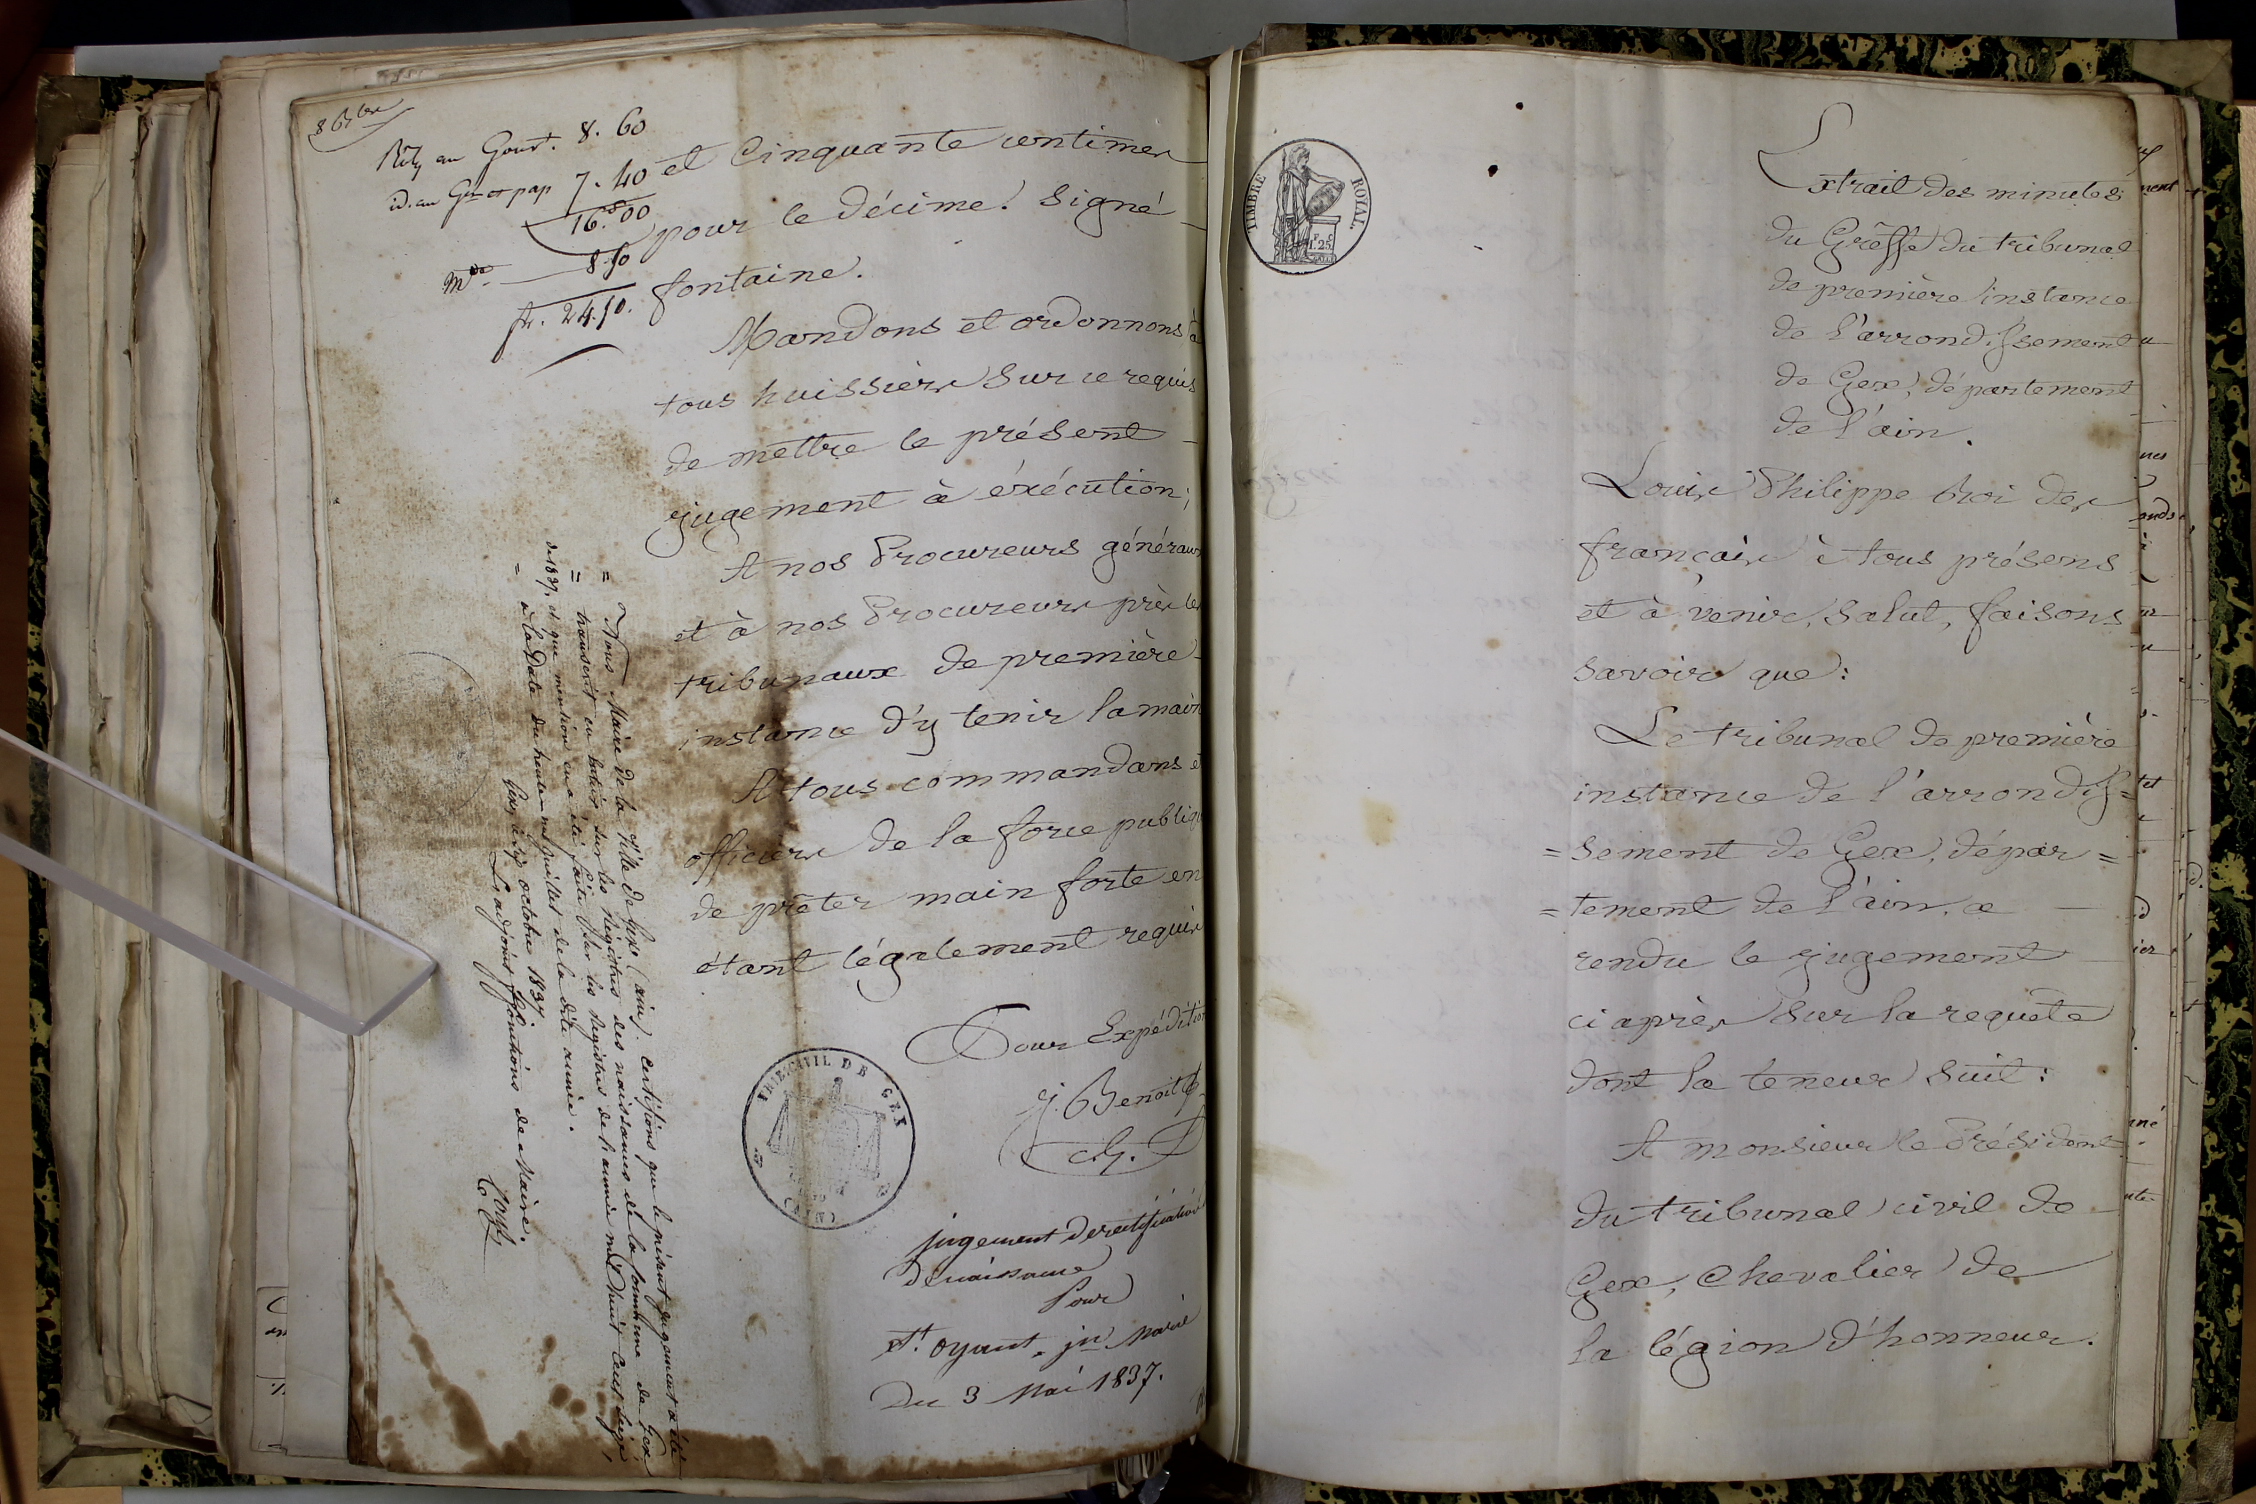 8 6bre
au Gouvt. 8. 60
id. au Gr et pap 7. 40
16.00
8.50
fr. 24.50.
et Cinquante centimes
pour le décime. Signé
fontaine.
Mandons et ordonnons à
tous huissiers sur ce requis
de mettre le présent
jugement à éxécution;
A nos Procureurs généraux
et à nos Procureurs près les
tribunaux de première
instance d'y tenir la main
A tous commandans et
officiers de la force publiq
de prêter main forte en
étant légalement requis
Pour Expédition
J. Benoit
C. G.
TRIB. CIVIL DE GEX
(AIN)
jugement de rectification
de naissance
Pour
St. oyant, jn Marie
Du 3 Mai 1837.
= Nous Maire de la Ville de Gex (ain) certifions que le présent jugement a été
= transcrit en entier sur les Régistres des naissances de la Commune de Gex
de 1837, et que mention en a été faite sur les Registres de l'année mil huit cent seize,
= à la date du juillet de la dite année.
Gex, le octobre 1837.
L'adjoint ffontions de Maire.
TIMBRE ROYAL
1F 25C
Extrait des minutes
du Grèffe du tribunal
de première instance
de l'arrondissement
de Gex, département
de l'ain.
Louis Philippe Roi des
français à tous présens
et à venir, Salut, faisons
savoir que:
Le tribunal de première
instance de l'arrondis=
=sement de Gex, dépar=
=tement de l'ain, a
rendu le jugement
ci après sur la requête
dont la teneur suit:
A monsieur le Président
du tribunal civil de
Gex, Chevalier de
la légion d'honneur.